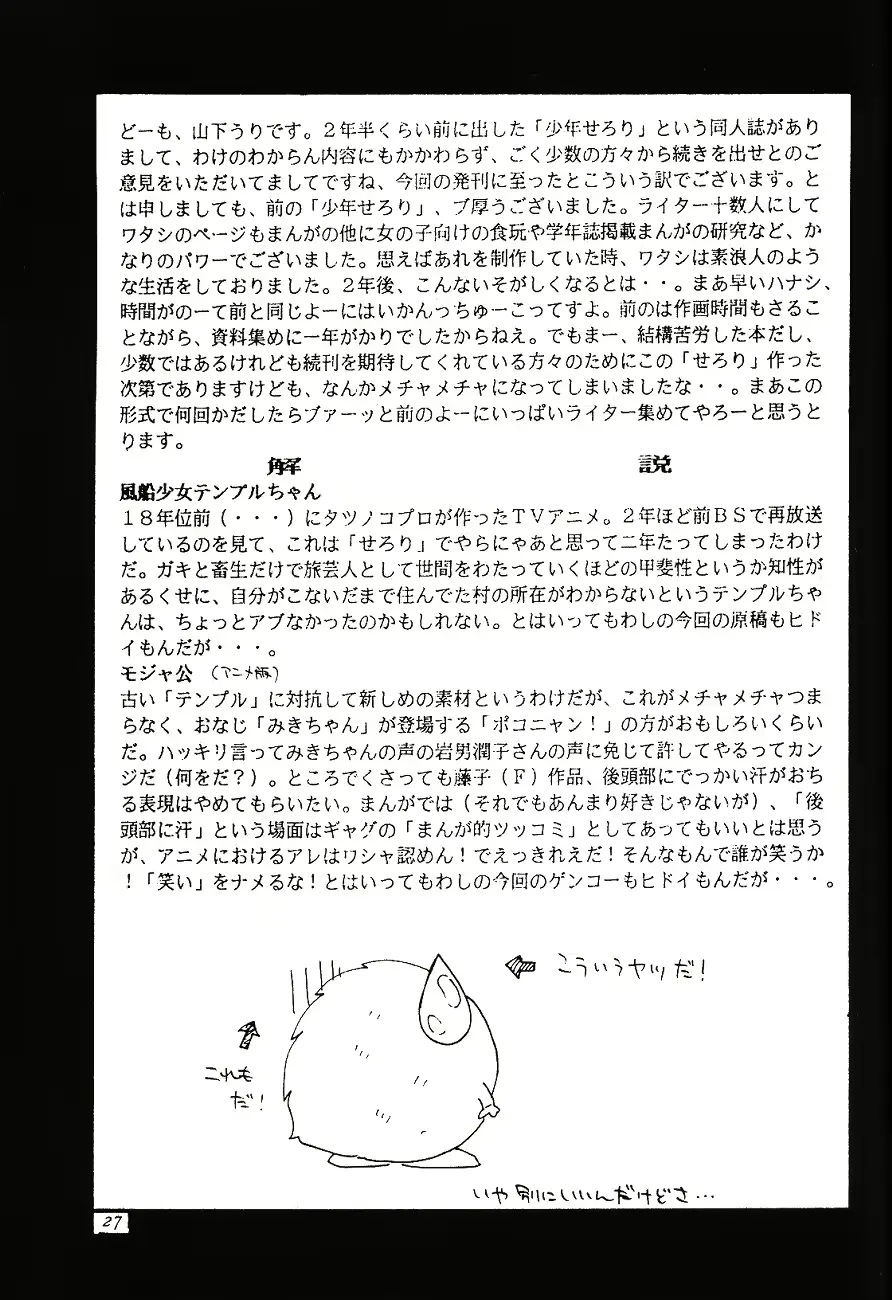 どーも、山下うりです。２年半くらい前に出した「少年せろり」という同人誌があり
まして、わけのわからん内容にもかかわらず、ごく少数の方々から続きを出せとのご
意見をいただいてましてですね、今回の発刊に至ったとこういう訳でございます。と
は申しましても、前の「少年せろり」、ブ厚うございました。ライター十数人にして
ワタシのページもまんがの他に女の子向けの食玩や学年誌掲載まんがの研究など、か
なりのパワーでございました。思えばあれを制作していた時、ワタシは素浪人のよう
な生活をしておりました。２年後、こんないそがしくなるとは・・。まあ早いハナシ、
時間がのーて前と同じよーにはいかんっちゅーこってすよ。前のは作画時間もさるこ
とながら、資料集めに一年がかりでしたからねえ。でもまー、結構苦労した本だし、
少数ではあるけれども続刊を期待してくれている方々のためにこの「せろり」作った
次第でありますけども、なんかメチャメチャになってしまいましたな・・。まあこの
形式で何回かだしたらブァーッと前のよーにいっぱいライター集めてやろーと思うと
ります。
解　説
風船少女テンプルちゃん
１８年位前（・・・）にタツノコプロが作ったＴＶアニメ。２年ほど前ＢＳで再放送
しているのを見て、これは「せろり」でやらにゃあと思って二年たってしまったわけ
だ。ガキと畜生だけで旅芸人として世間をわたっていくほどの甲斐性というか知性が
あるくせに、自分がこないだまで住んでた村の所在がわからないというテンプルちゃ
んは、ちょっとアブなかったのかもしれない。とはいってもわしの今回の原稿もヒド
イもんだが・・・。
モジャ公　（アニメ版）
古い「テンプル」に対抗して新しめの素材というわけだが、これがメチャメチャつま
らなく、おなじ「みきちゃん」が登場する「ポコニャン！」の方がおもしろいくらい
だ。ハッキリ言ってみきちゃんの声の岩男潤子さんの声に免じて許してやるってカン
ジだ（何をだ？）。ところでくさっても藤子（Ｆ）作品、後頭部にでっかい汗がおち
る表現はやめてもらいたい。まんがでは（それでもあんまり好きじゃないが）、「後
頭部に汗」という場面はギャグの「まんが的ツッコミ」としてあってもいいとは思う
が、アニメにおけるアレはワシャ認めん！でえっきれえだ！そんなもんで誰が笑うか
！「笑い」をナメるな！とはいってもわしの今回のゲンコーもヒドイもんだが・・・。
こういうヤツだ！
これも
だ！
いや別にいいんだけどさ…
27